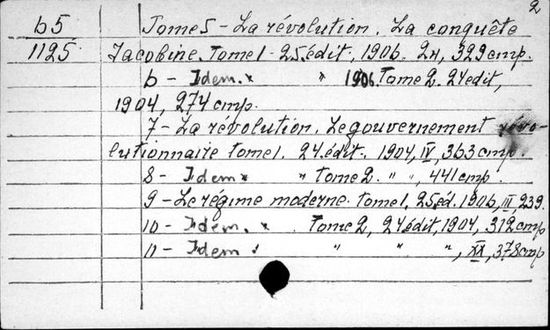 2
65 Tome 5 - La révolution. La conquête
1125 Jacobine. Tome 1 - 25.édit, 1906. 2н, 329 стр.
6 - Idem. " " 1906. Tome 2. 24 edit,
1904, 274 стр.
7 - La révolution. Le gouvernement révo-
lutionnaire tome 1. 24.édit. 1904, IV, 363 стр.
8 - Idem " " tome 2. " ", 441 стр.
9 - Le régime moderne. tome 1, 25 éd. 1906, III, 239.
10 - Idem. " Tome 2, 24 édit, 1904, 312 стр
11 - Idem " " " ", XX, 378 стр